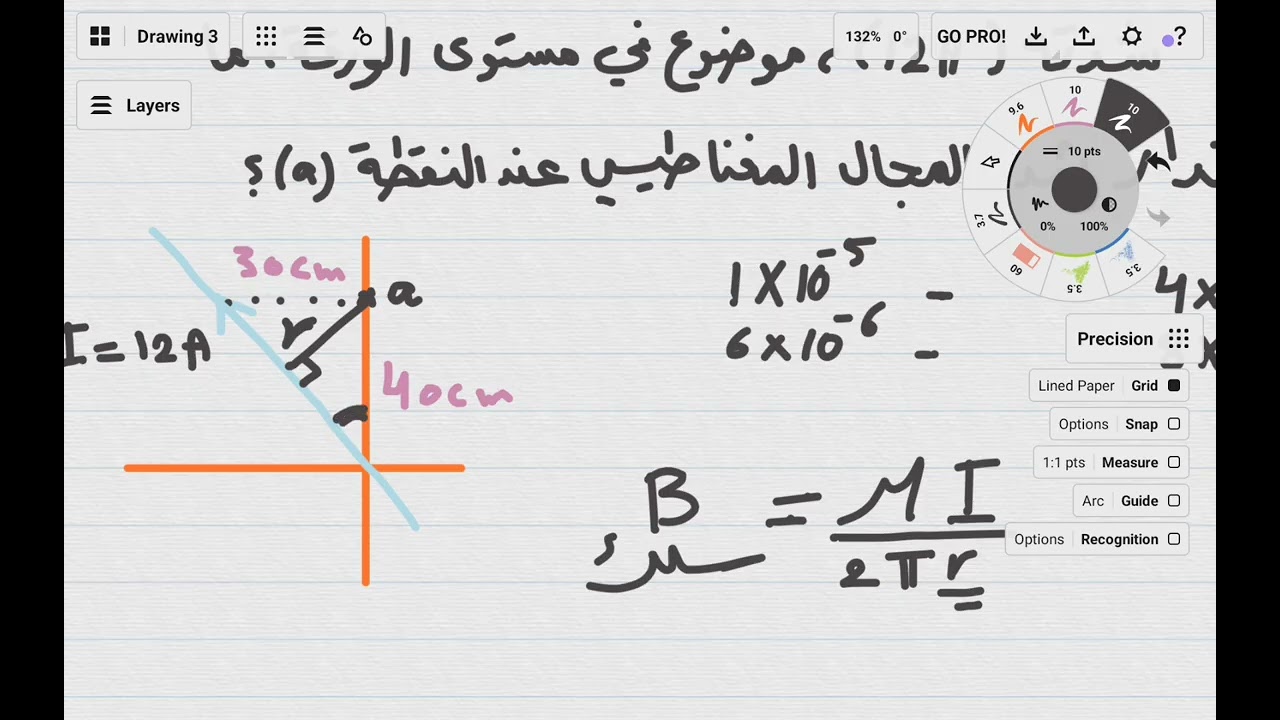 Drawing 3
132% 0° GO PRO! ?
Layers
(12A) ، موضوع في مستوى الورقة ، ما
المجال المغناطيسي عند النقطة (a) ؟
9.6 10 10
10 pts
3.7 0% 100%
60 3.5 3.5
30cm
a
I = 12A
r
40cm
1 X 10⁻⁵ -
6 x 10⁻⁶ -
4x
B سلك = μ I / 2 π r
Precision
Lined Paper Grid
Options Snap
1:1 pts Measure
Arc Guide
Options Recognition